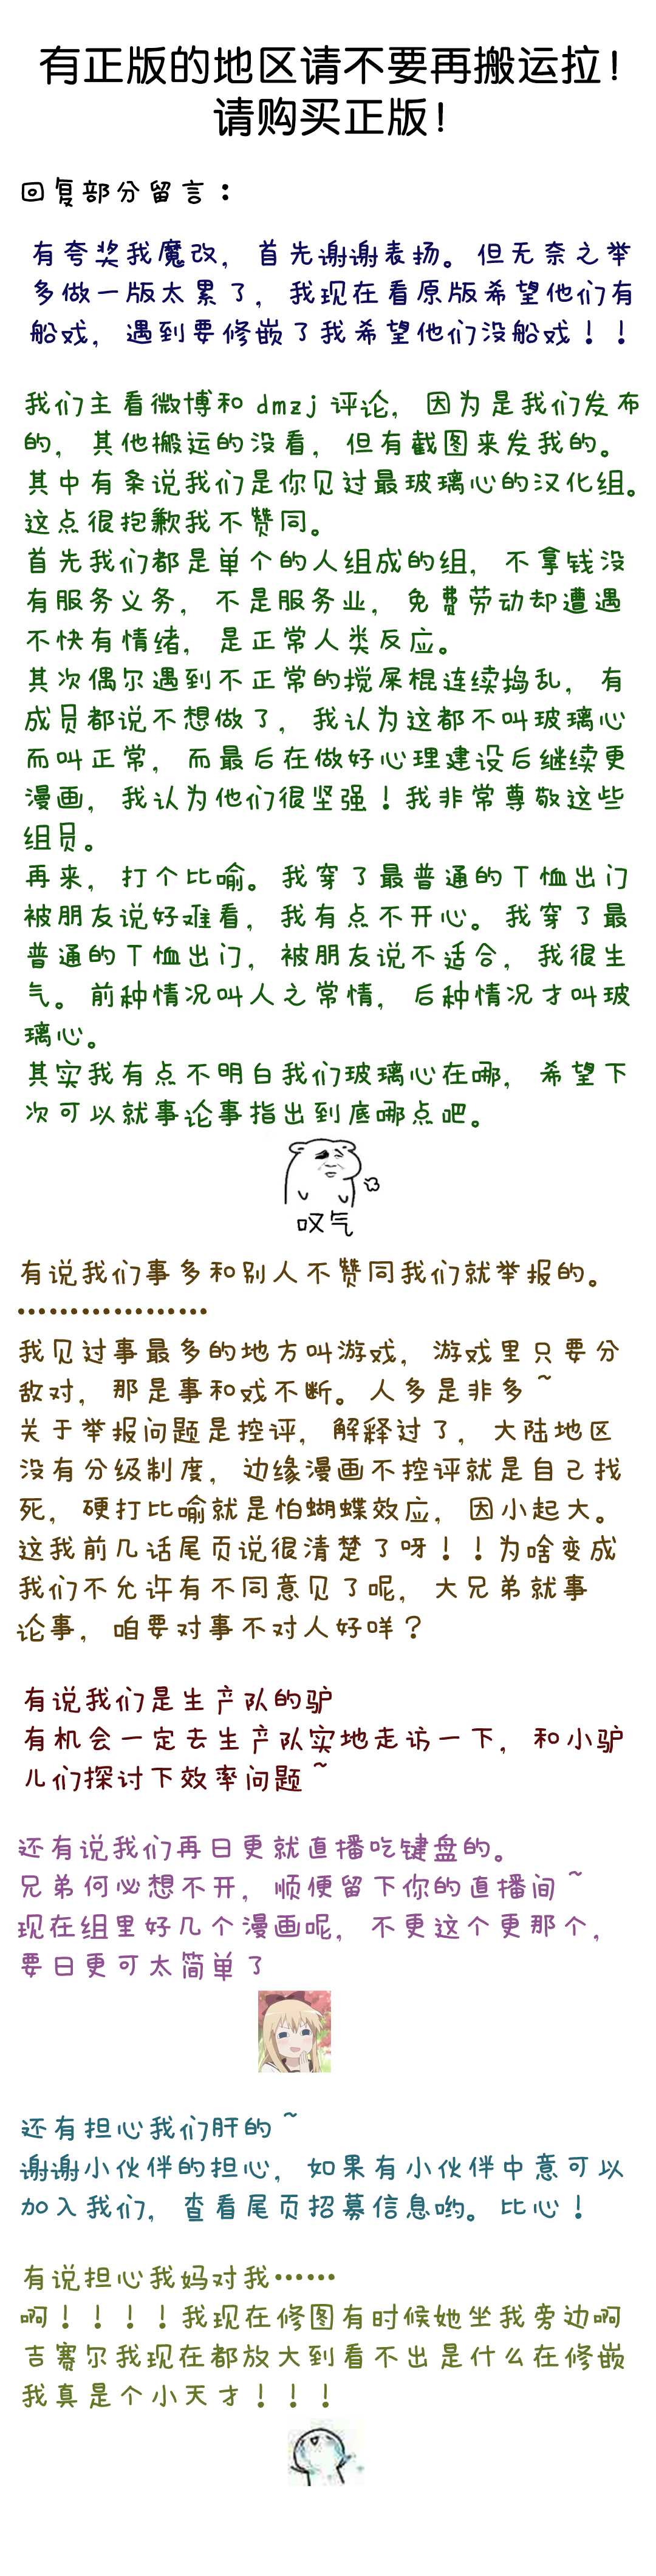 有正版的地区请不要再搬运拉！
请购买正版！
回复部分留言：
有夸奖我魔改，首先谢谢表扬。但无奈之举
多做一版太累了，我现在看原版希望他们有
船戏，遇到要修嵌了我希望他们没船戏！！
我们主看微博和dmzj评论，因为是我们发布
的，其他搬运的没看，但有截图来发我的。
其中有条说我们是你见过最玻璃心的汉化组。
这点很抱歉我不赞同。
首先我们都是单个的人组成的组，不拿钱没
有服务义务，不是服务业，免费劳动却遭遇
不快有情绪，是正常人类反应。
其次偶尔遇到不正常的搅屎棍连续捣乱，有
成员都说不想做了，我认为这都不叫玻璃心
而叫正常，而最后在做好心理建设后继续更
漫画，我认为他们很坚强！我非常尊敬这些
组员。
再来，打个比喻。我穿了最普通的T恤出门
被朋友说好难看，我有点不开心。我穿了最
普通的T恤出门，被朋友说不适合，我很生
气。前种情况叫人之常情，后种情况才叫玻
璃心。
其实我有点不明白我们玻璃心在哪，希望下
次可以就事论事指出到底哪点吧。
叹气
有说我们事多和别人不赞同我们就举报的。
………………
我见过事最多的地方叫游戏，游戏里只要分
敌对，那是事和戏不断。人多是非多~
关于举报问题是控评，解释过了，大陆地区
没有分级制度，边缘漫画不控评就是自己找
死，硬打比喻就是怕蝴蝶效应，因小起大。
这我前几话尾页说很清楚了呀！！为啥变成
我们不允许有不同意见了呢，大兄弟就事
论事，咱要对事不对人好咩？
有说我们是生产队的驴
有机会一定去生产队实地走访一下，和小驴
儿们探讨下效率问题~
还有说我们再日更就直播吃键盘的。
兄弟何必想不开，顺便留下你的直播间~
现在组里好几个漫画呢，不更这个更那个，
要日更可太简单了
还有担心我们肝的~
谢谢小伙伴的担心，如果有小伙伴中意可以
加入我们，查看尾页招募信息哟。比心！
有说担心我妈对我……
啊！！！！我现在修图有时候她坐我旁边啊
吉赛尔我现在都放大到看不出是什么在修嵌
我真是个小天才！！！